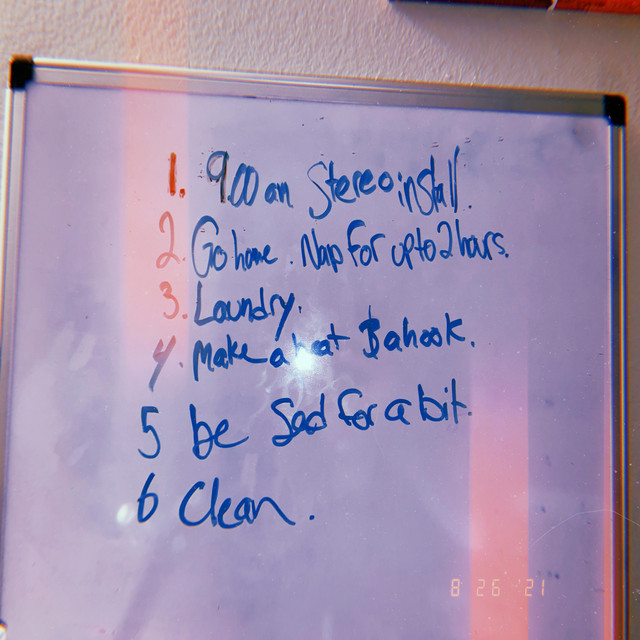 1. 900 am Stereo install.
2. Go home. Nap for up to 2 hours.
3. Laundry.
4. Make a beat $ a hook.
5 be Sad for a bit.
6 Clean.
8 26 '21